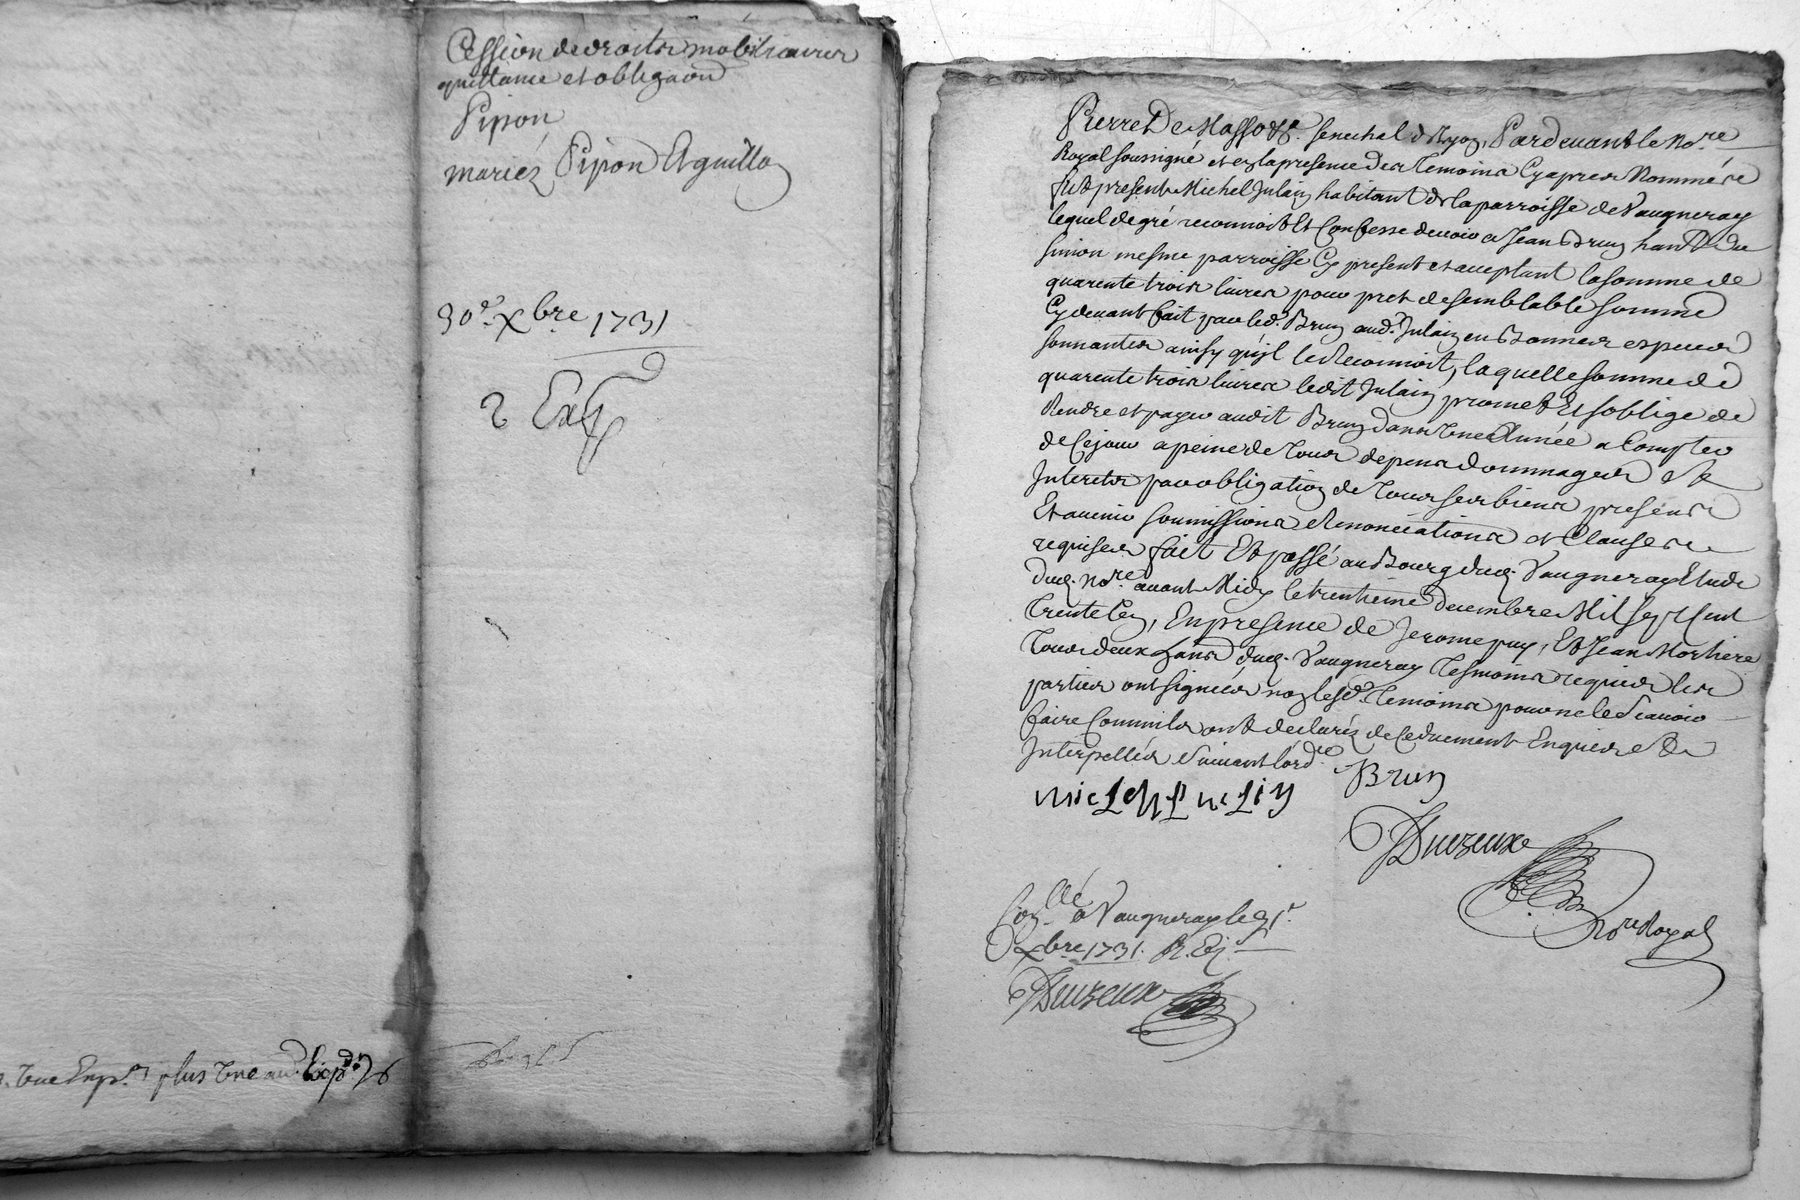 Cession de droits mobiliaires
quittance et obligaon
Pipon
mariéz Pipon Aguillon
30e. Xbre 1731
2 Ex
Une Exp. plus Une au. Exp.
Pierre De Masso &c. senechal de Lyon, Pardevant le Nore
Royal soussigné et en la presence des Temoins Cy apres Nommés
fut present Michel Julain habitant de la parroisse de Vaugneray
lequel de gré reconnoit Et Confesse devoir a Jean Brun hant du
simion mesme parroisse Cy present et acceptant la somme de
quarente trois livres pour pret de semblable somme
Cy devant fait par led. Brun aud. Julain en Bonnes especes
sonnantes ainsy qu'jl le Reconnoit, laquelle somme de
quarente trois livres ledit Julain promet Et soblige de
Rendre et payer audit Brun dans Une Année a Compter
de Ce jour a peine de Tous depens dommages et
Interets par obligation de Tous ses biens presens
Et avenir soumissions Renonciations et Clauses
requises fait Et passé au Bourg dud. Vaugneray Etude
dud. Nore avant Midy le trentieme decembre Mil sept Cent
Trente Un, En presence de Jerome puy, Et Jean Mortiere
Tous deux hans dud. Vaugneray Tesmoins requis les
parties ont signées non lesd. Temoins pour ne le Scavoir
faire Comm'ils ont declaréz de Ce duement Enquis et
Interpellés suivant lord.ce
Brun
michel julin
Duezeux
nore Royal
Con.llé a Vaugneray le 31e.
Xbre 1731. R.
Duezeux